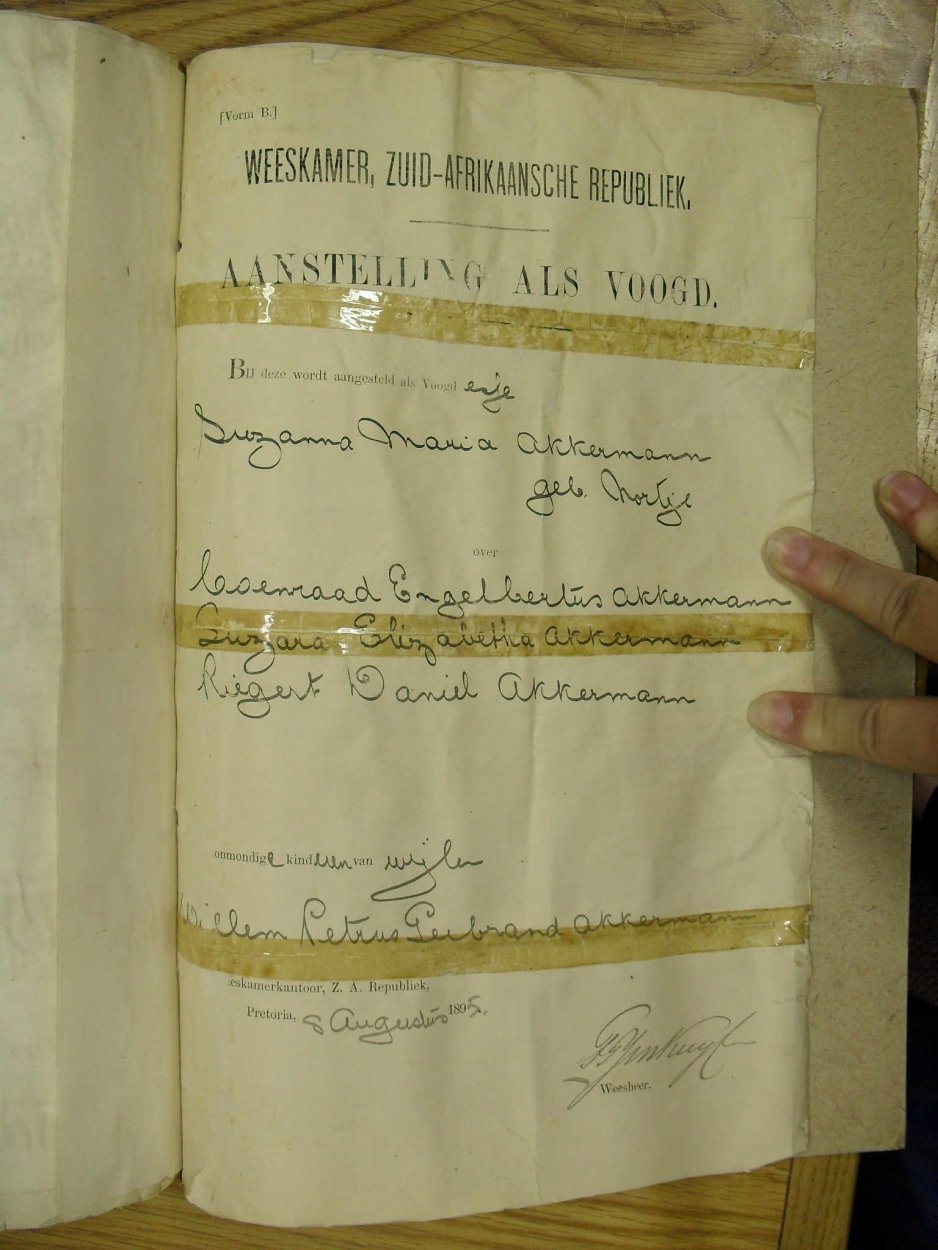 [Vorm B.]
WEESKAMER, ZUID-AFRIKAANSCHE REPUBLIEK.
AANSTELLING ALS VOOGD.
Bij deze wordt aangesteld als Voogd esje
Suzanna Maria Akkermann
geb. Nortje
over
Coenraad Engelbertus Akkermann
Suzara Elizabetha Akkermann
Riegert Daniel Akkermann
onmondige kinderen van wijlen
Willem Petrus Akkermann
eeskamerkantoor, Z. A. Republiek,
Pretoria, 8 Augustus 1895.
Weesheer.